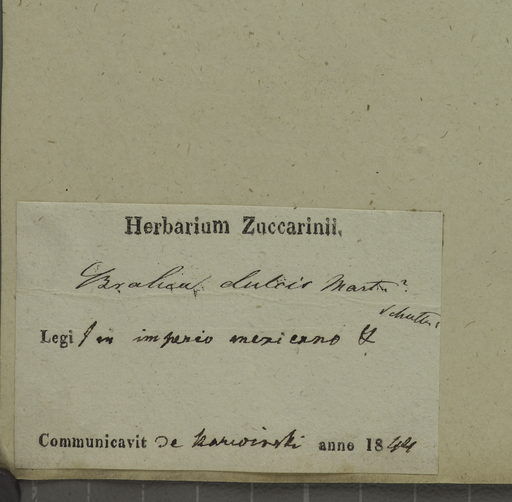 Herbarium Zuccarinii.
Brahea dulcis Mart. ?
Legi in imperio mexicano
Communicavit de Karwinski anno 1844